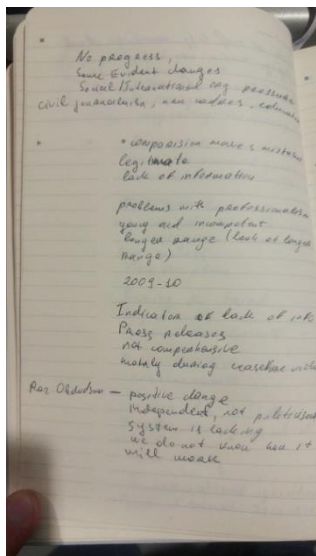 No progress,
Some Evident changes
Social / International org pressure
civil journalism, new medias,
• comparision makes mistakes
legitimate
lack of information
problems with professionalism
young and incompetent
longer range (lack of longer
range)
2009-10
Indicator of lack of info
Press releases
not comprehensive
mainly during ceasefire
— positive change
independent, not politicised
system is lacking
we do not know how it
will work